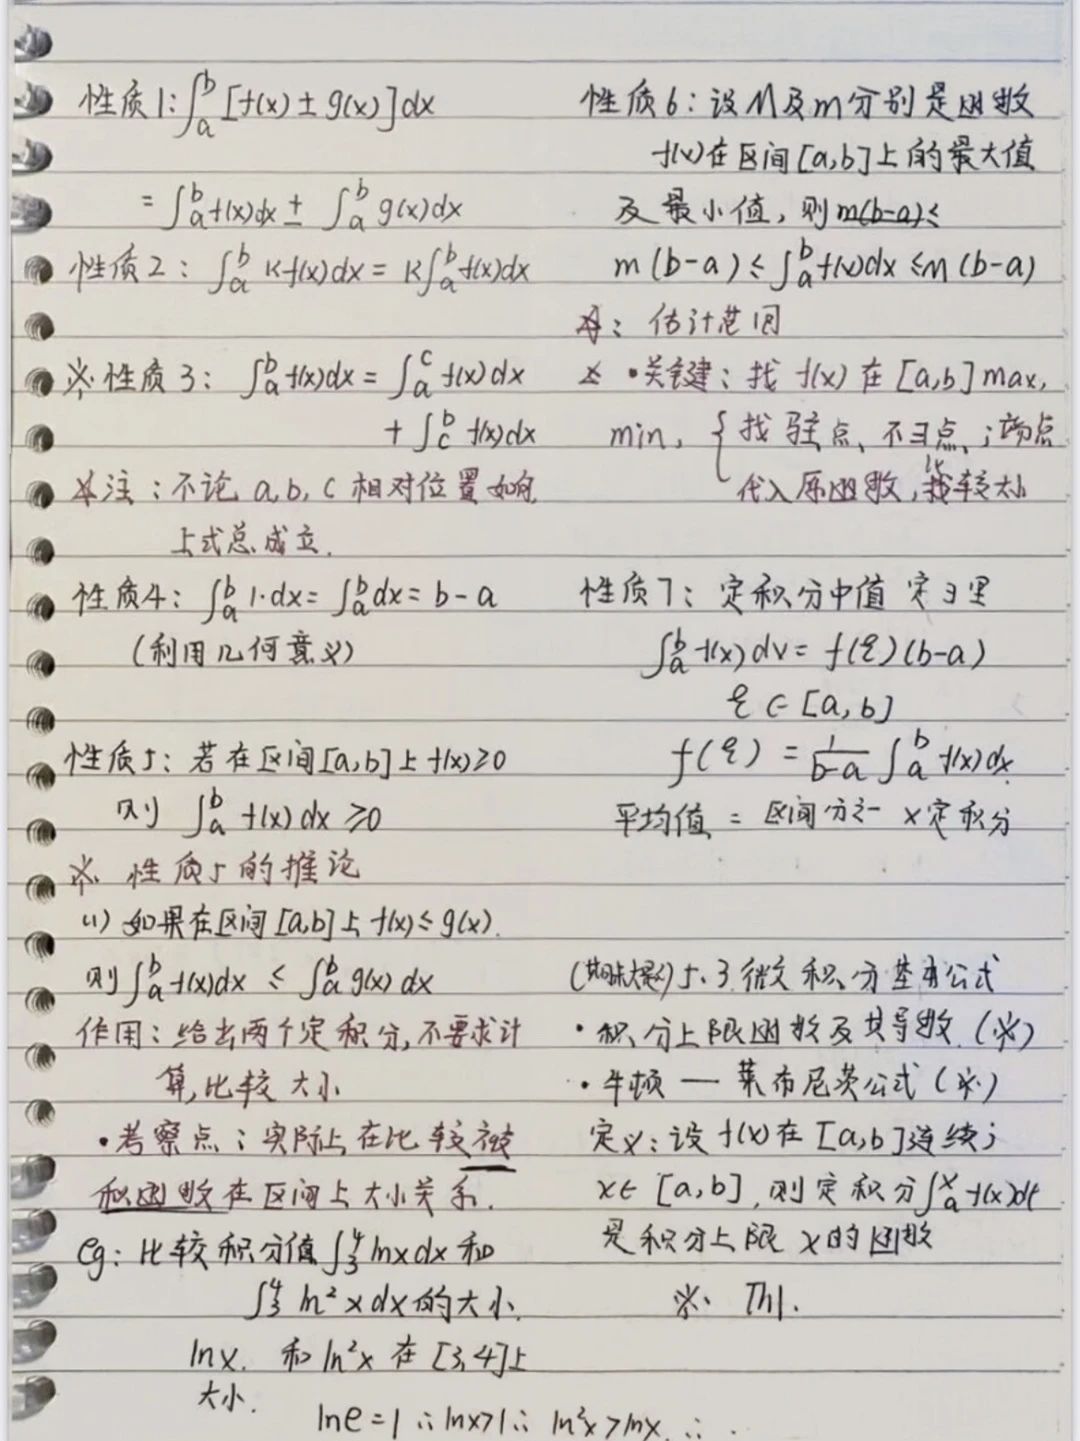 性质1:∫_a^b [f(x)±g(x)]dx
= ∫_a^b f(x)dx ± ∫_a^b g(x)dx
性质2: ∫_a^b kf(x)dx = k∫_a^b f(x)dx
※性质3: ∫_a^b f(x)dx = ∫_a^c f(x)dx
+ ∫_c^b f(x)dx
☆注:不论a,b,c相对位置如何
上式总成立.
性质4: ∫_a^b 1·dx = ∫_a^b dx = b-a
(利用几何意义)
性质5: 若在区间[a,b]上f(x)≥0
则 ∫_a^b f(x)dx ≥0
※ 性质5的推论
(1) 如果在区间[a,b]上f(x)≤g(x).
则∫_a^b f(x)dx ≤ ∫_a^b g(x)dx
作用:给出两个定积分,不要求计
算,比较大小
·考察点:实际上在比较被
积函数在区间上大小关系.
eg: 比较积分值∫_3^4 lnxdx和
∫_3^4 ln²xdx的大小.
lnx. 和ln²x在[3,4]上
大小.
lne=1∴lnx>1∴ ln²x>lnx. ∴
性质6:设M及m分别是函数
f(x)在区间[a,b]上的最大值
及最小值,则m(b-a)≤
m(b-a)≤∫_a^b f(x)dx≤M(b-a)
☆: 估计范围
☆ ·关键:找f(x)在[a,b]max,
min, { 找驻点、不可导点;端点
代入原函数,比较大小
性质7: 定积分中值定理
∫_a^b f(x)dx = f(ξ)(b-a)
ξ∈[a,b]
f(ξ) = 1/(b-a) ∫_a^b f(x)dx
平均值 = 区间分之一 ×定积分
(期末大题)5.3微文积分基本公式
·积分上限函数及其导数.(※)
·牛顿—莱布尼茨公式(※)
定义:设f(x)在[a,b]连续;
x∈[a,b],则定积分∫_a^x f(x)dt
是积分上限x的函数
※ Th1.